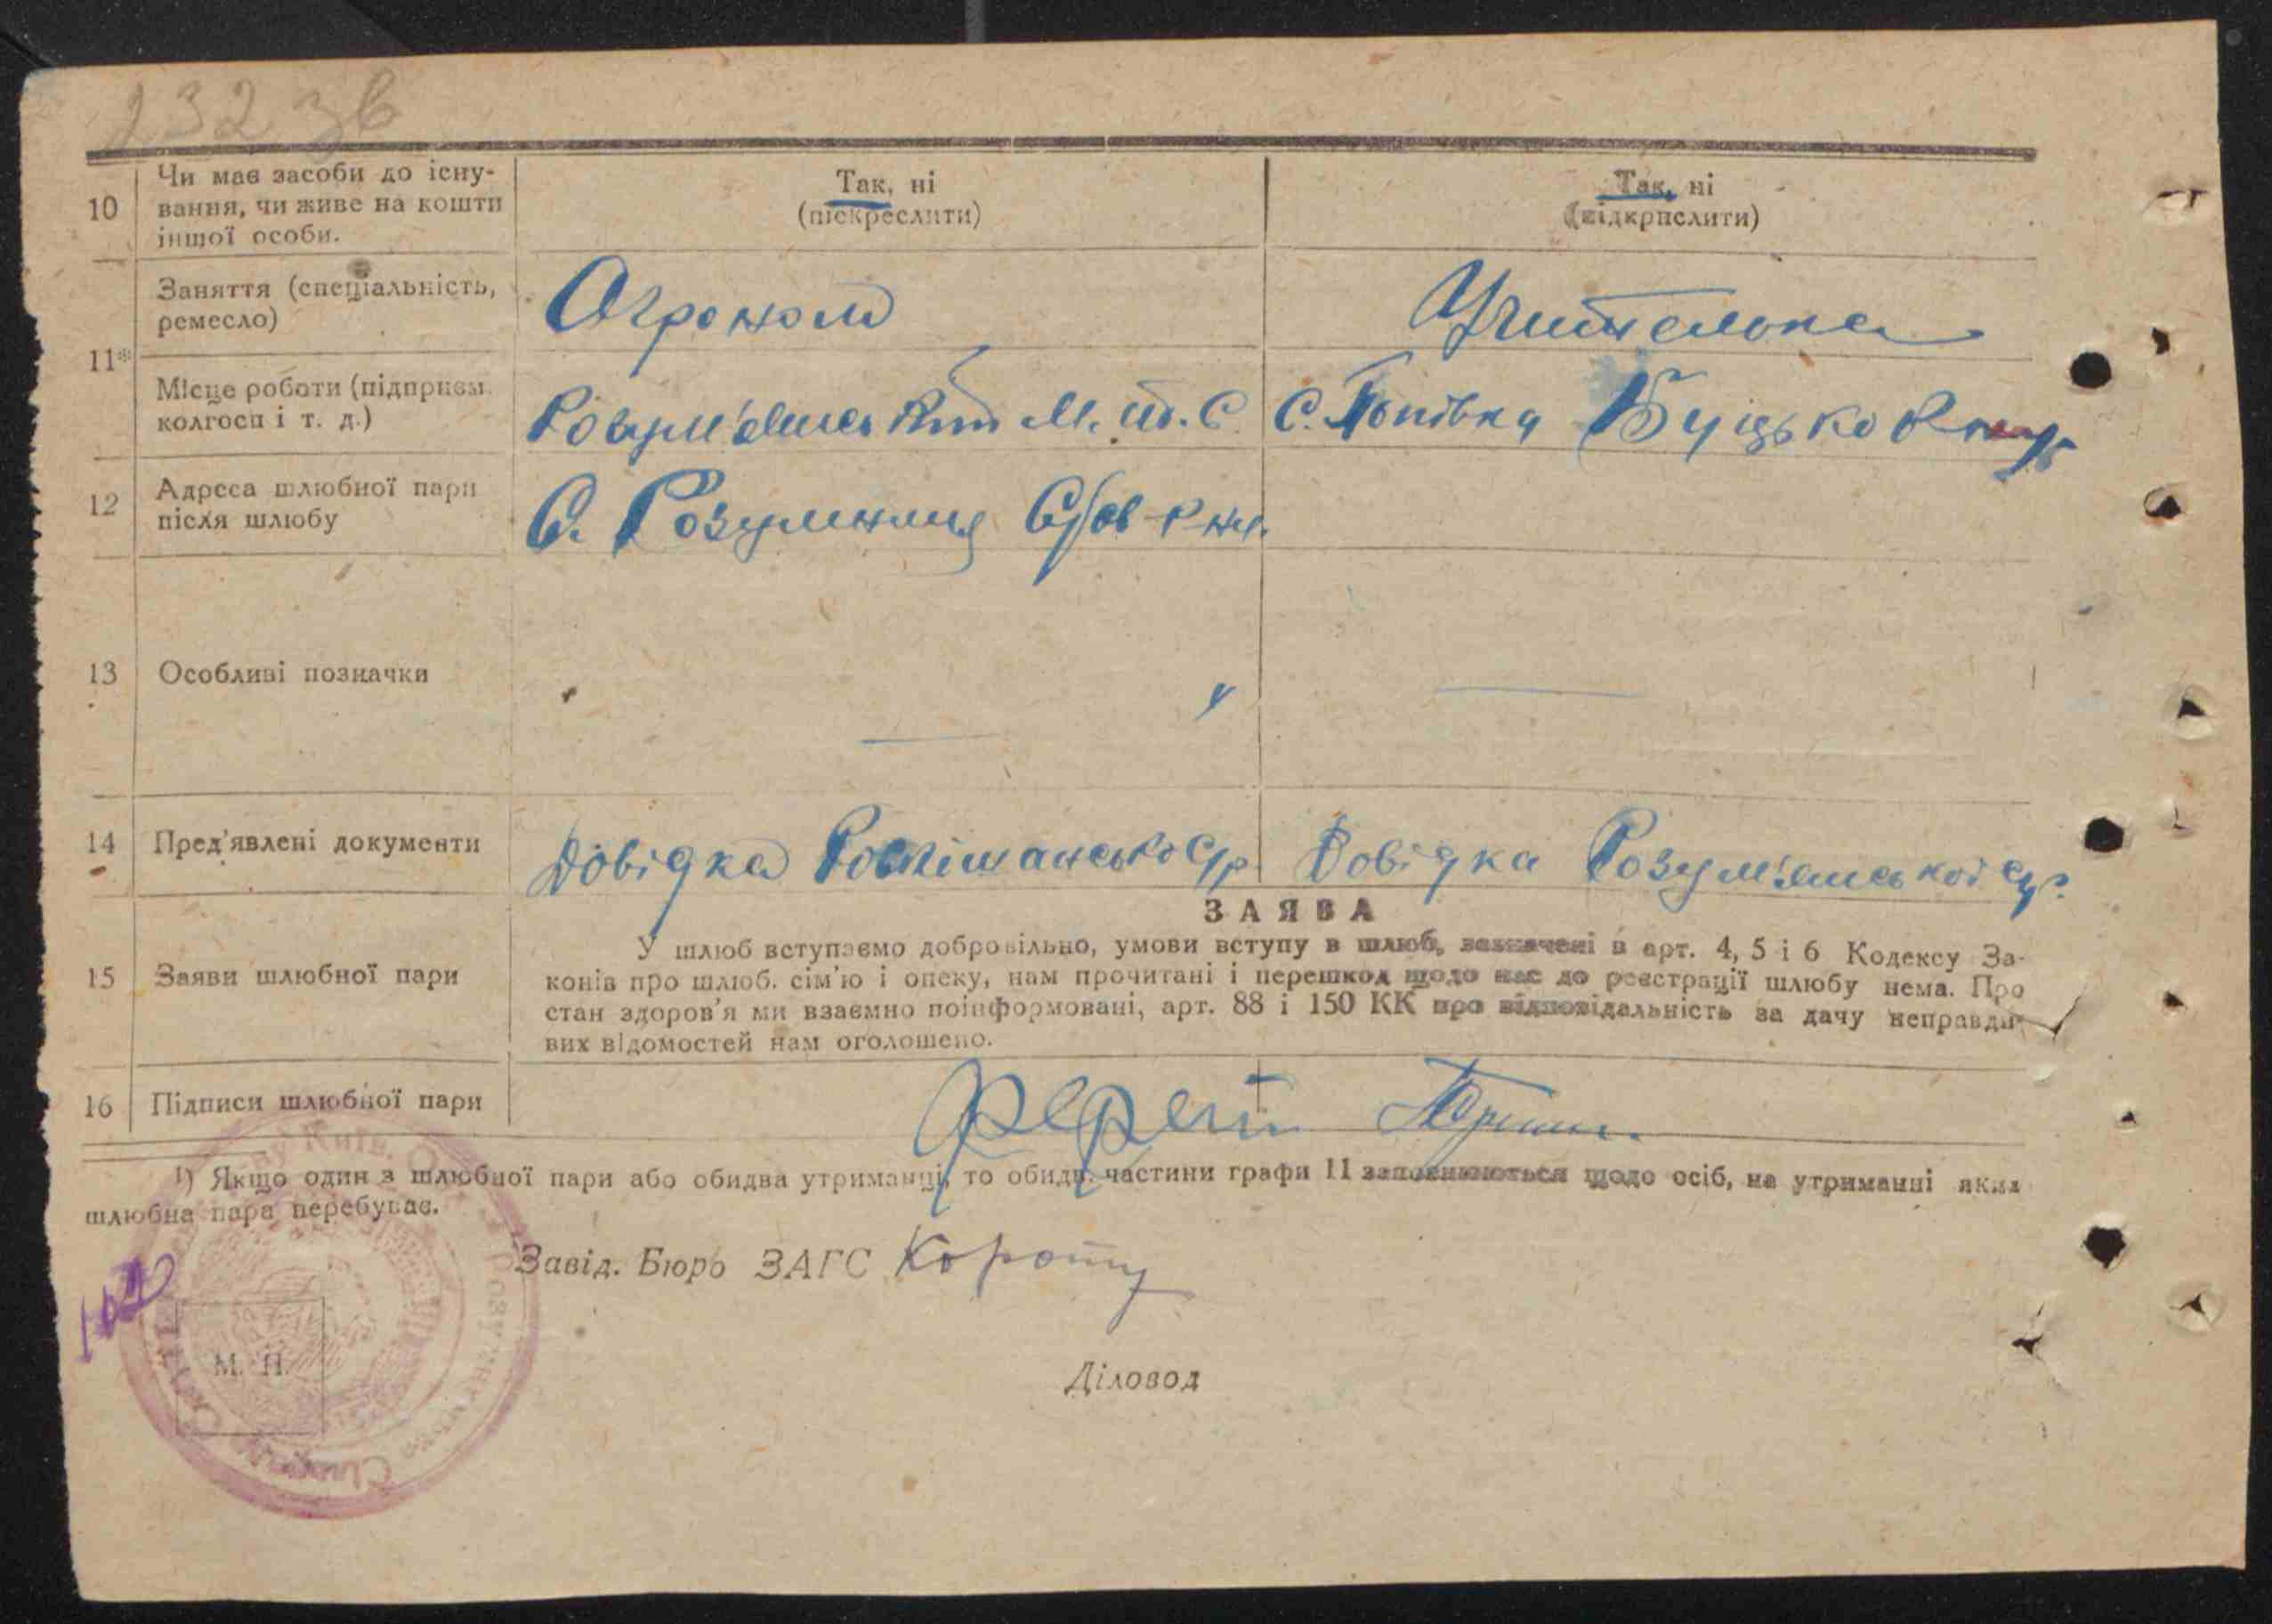 232 зв
10
Чи має засоби до існу-
вання, чи живе на кошти
іншої особи.
Так, ні
(піскреслити)
Так, ні
(підкрислити)
11*
Заняття (спеціальність,
ремесло)
Агроном
Учителька
Місце роботи (підприєм.
колгосп і т. д.)
М. Т. С.
С. Попівка
12
Адреса шлюбної пари
після шлюбу
С. Розумниця
13
Особливі позначки
14
Пред'явлені документи
Довідка
Довідка
ЗАЯВА
15
Заяви шлюбної пари
У шлюб вступаємо добровільно, умови вступу в шлюб, зазначені в арт. 4, 5 і 6 Кодексу За-
конів про шлюб. сім'ю і опеку, нам прочитані і перешкод щодо нас до реєстрації шлюбу нема. Про
стан здоров'я ми взаємно поінформовані, арт. 88 і 150 КК про відповідальність за дачу неправди-
вих відомостей нам оголошено.
16
Підписи шлюбної пари
¹) Якщо один з шлюбної пари або обидва утриманці, то обидві частини графи 11 заповнюються щодо осіб, на утриманні яких
шлюбна пара перебуває.
Завід. Бюро ЗАГС
М. П.
Діловод